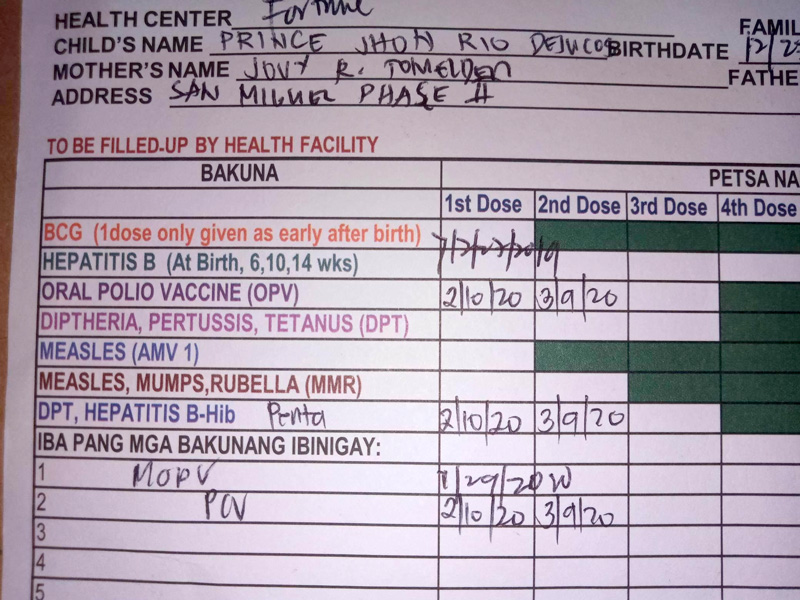 HEALTH CENTER Fortune
CHILD'S NAME PRINCE JHON RIO DEJUCOS BIRTHDATE 12/25
MOTHER'S NAME JOVY R. TOMELDEN
ADDRESS SAN MIGUEL PHASE II
FAMIL
FATHE
TO BE FILLED-UP BY HEALTH FACILITY
BAKUNA PETSA NA
1st Dose 2nd Dose 3rd Dose 4th Dose
BCG (1dose only given as early after birth)
HEPATITIS B (At Birth, 6,10,14 wks)
ORAL POLIO VACCINE (OPV) 2/10/20 3/9/20
DIPTHERIA, PERTUSSIS, TETANUS (DPT)
MEASLES (AMV 1)
MEASLES, MUMPS,RUBELLA (MMR)
DPT, HEPATITIS B-Hib Penta 2/10/20 3/9/20
IBA PANG MGA BAKUNANG IBINIGAY:
1 MOPV
2 PCV 2/10/20 3/9/20
3
4
5